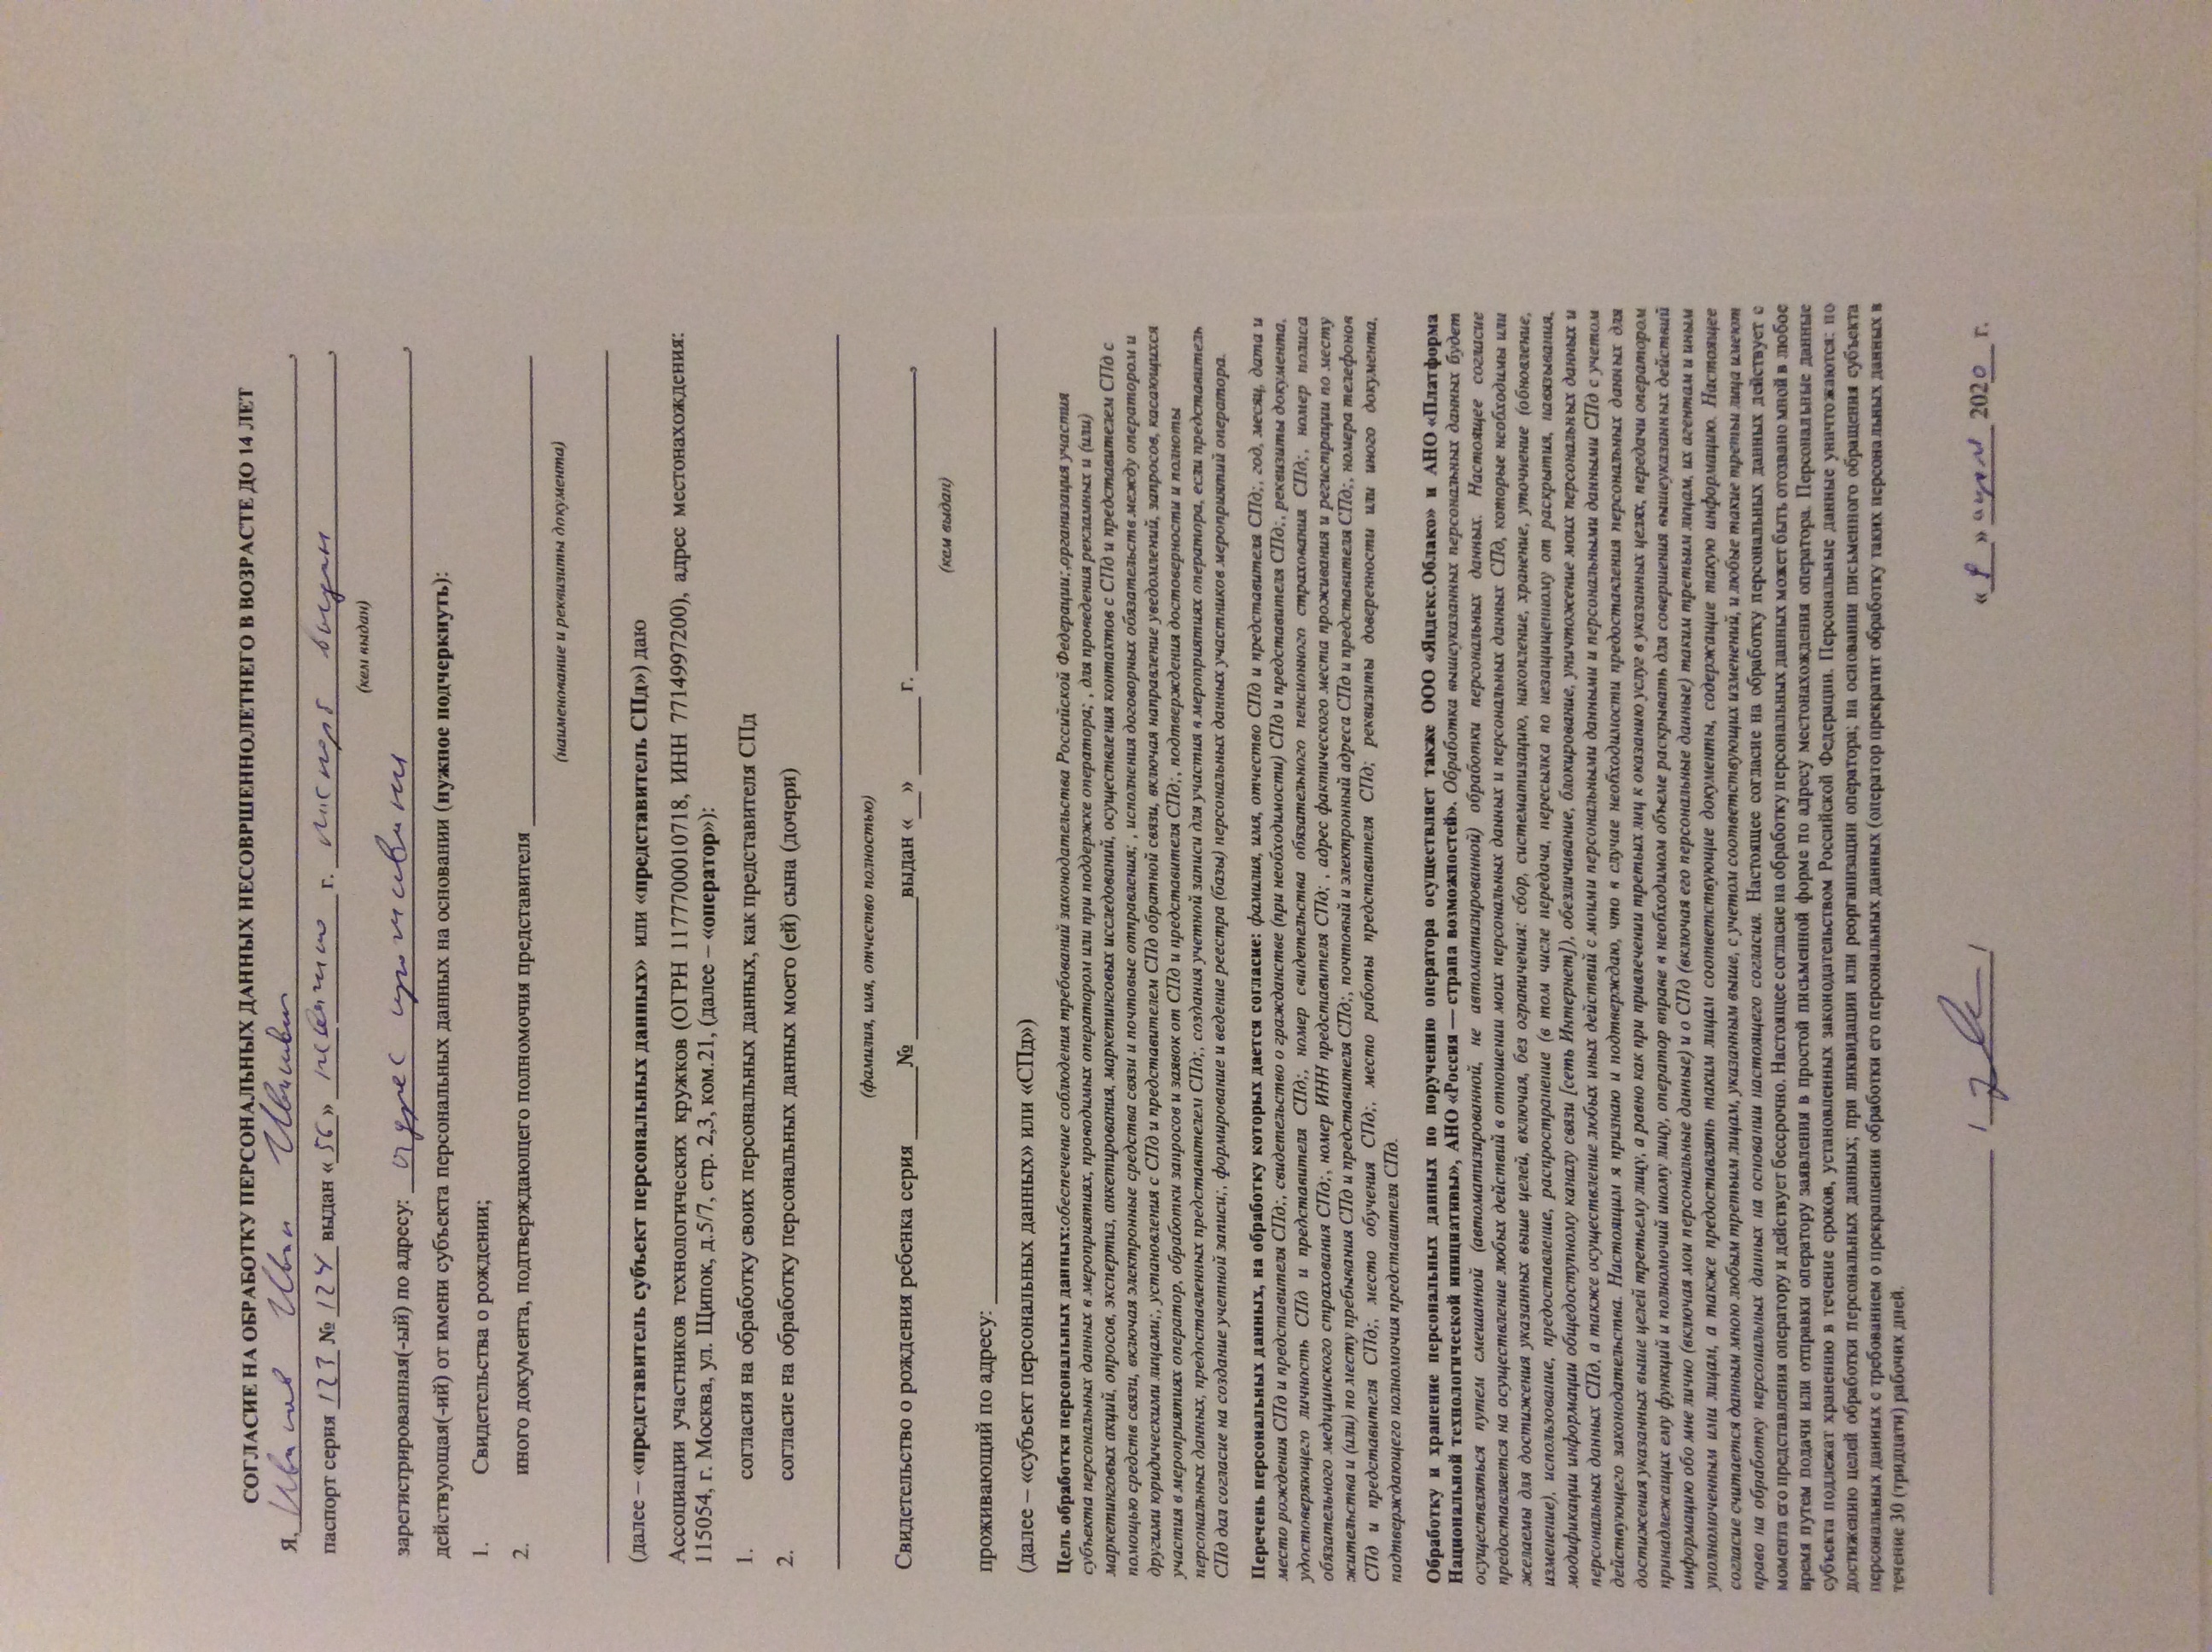 СОГЛАСИЕ НА ОБРАБОТКУ ПЕРСОНАЛЬНЫХ ДАННЫХ НЕСОВРШЕННОЛЕТНЕГО В ВОЗРАСТЕ ДО 14 ЛЕТ
Я, Иванов Иван Иванович,
паспорт серия 123 № 124 выдан « 56 » неважно г. паспорт выдан,
(кем выдан)
зарегистрированная(-ый) по адресу: адрес проживания,
действующая(-ий) от имени субъекта персональных данных на основании (нужное подчеркнуть):
1. Свидетельства о рождении;
2. иного документа, подтверждающего полномочия представителя
(наименование и реквизиты документа)
(далее – «представитель субъект персональных данных» или «представитель СПд») даю
Ассоциации участников технологических кружков (ОГРН 1177700010718, ИНН 7714997200), адрес местонахождения:
115054, г. Москва, ул. Щипок, д.5/7, стр. 2,3, ком.21, (далее – «оператор»):
1. согласия на обработку своих персональных данных, как представителя СПд
2. согласие на обработку персональных данных моего (ей) сына (дочери)
(фамилия, имя, отчество полностью)
Свидетельство о рождения ребенка серия ______№ ____________выдан «__» ______ г. ________________________,
(кем выдан)
проживающий по адресу:
(далее – «субъект персональных данных» или «СПд»)
Цель обработки персональных данных:обеспечение соблюдения требований законодательства Российской Федерации;,организация участия
субъекта персональных данных в мероприятиях, проводимых оператором или при поддержке оператора; , для проведения рекламных и (или)
маркетинговых акций, опросов, экспертиз, анкетирования, маркетинговых исследований, осуществления контактов с СПд и представителем СПд с
помощью средств связи, включая электронные средства связи и почтовые отправления; , исполнения договорных обязательств между оператором и
другими юридическими лицами;, установления с СПд и представителем СПд обратной связи, включая направление уведомлений, запросов, касающихся
участия в мероприятиях оператор, обработки запросов и заявок от СПд и представителя СПд;, подтверждения достоверности и полноты
персональных данных, предоставленных представителем СПд;, создания учетной записи для участия в мероприятиях оператора, если представитель
СПд дал согласие на создание учетной записи;, формирование и ведение реестра (базы) персональных данных участников мероприятий оператора.
Перечень персональных данных, на обработку которых дается согласие: фамилия, имя, отчество СПд и представителя СПд;, год, месяц, дата и
место рождения СПд и представителя СПд;, свидетельство о гражданстве (при необходимости) СПд и представителя СПд;, реквизиты документа,
удостоверяющего личность СПд и представителя СПд;, номер свидетельства обязательного пенсионного страхования СПд;, номер полиса
обязательного медицинского страхования СПд;, номер ИНН представителя СПд; , адрес фактического места проживания и регистрации по месту
жительства и (или) по месту пребывания СПд и представителя СПд;, почтовый и электронный адреса СПд и представителя СПд;, номера телефонов
СПд и представителя СПд;, место обучения СПд;, место работы представителя СПд; реквизиты доверенности или иного документа,
подтверждающего полномочия представителя СПд.
Обработку и хранение персональных данных по поручению оператора осуществляет также ООО «Яндекс.Облако» и АНО «Платформа
Национальной технологической инициативы», АНО «Россия — страна возможностей». Обработка вышеуказанных персональных данных будет
осуществляться путем смешанной (автоматизированной, не автоматизированной) обработки персональных данных. Настоящее согласие
предоставляется на осуществление любых действий в отношении моих персональных данных и персональных данных СПд, которые необходимы или
желаемы для достижения указанных выше целей, включая, без ограничения: сбор, систематизацию, накопление, хранение, уточнение (обновление,
изменение), использование, предоставление, распространение (в том числе передача, пересылка по незащищенному от раскрытия, навязывания,
модификации информации общедоступному каналу связи [сеть Интернет]), обезличивание, блокирование, уничтожение моих персональных данных и
персональных данных СПд, а также осуществление любых иных действий с моими персональными данными и персональными данными СПд с учетом
действующего законодательства. Настоящим я признаю и подтверждаю, что в случае необходимости предоставления персональных данных для
достижения указанных выше целей третьему лицу, а равно как при привлечении третьих лиц к оказанию услуг в указанных целях, передачи оператором
принадлежащих ему функций и полномочий иному лицу, оператор вправе в необходимом объеме раскрывать для совершения вышеуказанных действий
информацию обо мне лично (включая мои персональные данные) и о СПд (включая его персональные данные) таким третьим лицам, их агентам и иным
уполномоченным ими лицам, а также предоставлять таким лицам соответствующие документы, содержащие такую информацию. Настоящее
согласие считается данным мною любым третьим лицам, указанным выше, с учетом соответствующих изменений, и любые такие третьи лица имеют
право на обработку персональных данных на основании настоящего согласия. Настоящее согласие на обработку персональных данных действует с
момента его представления оператору и действует бессрочно. Настоящее согласие на обработку персональных данных может быть отозвано мной в любое
время путем подачи или отправки оператору заявления в простой письменной форме по адресу местонахождения оператора. Персональные данные
субъекта подлежат хранению в течение сроков, установленных законодательством Российской Федерации. Персональные данные уничтожаются: по
достижению целей обработки персональных данных; при ликвидации или реорганизации оператора; на основании письменного обращения субъекта
персональных данных с требованием о прекращении обработки его персональных данных (оператор прекратит обработку таких персональных данных в
течение 30 (тридцати) рабочих дней.
« » апреля 2020 г.